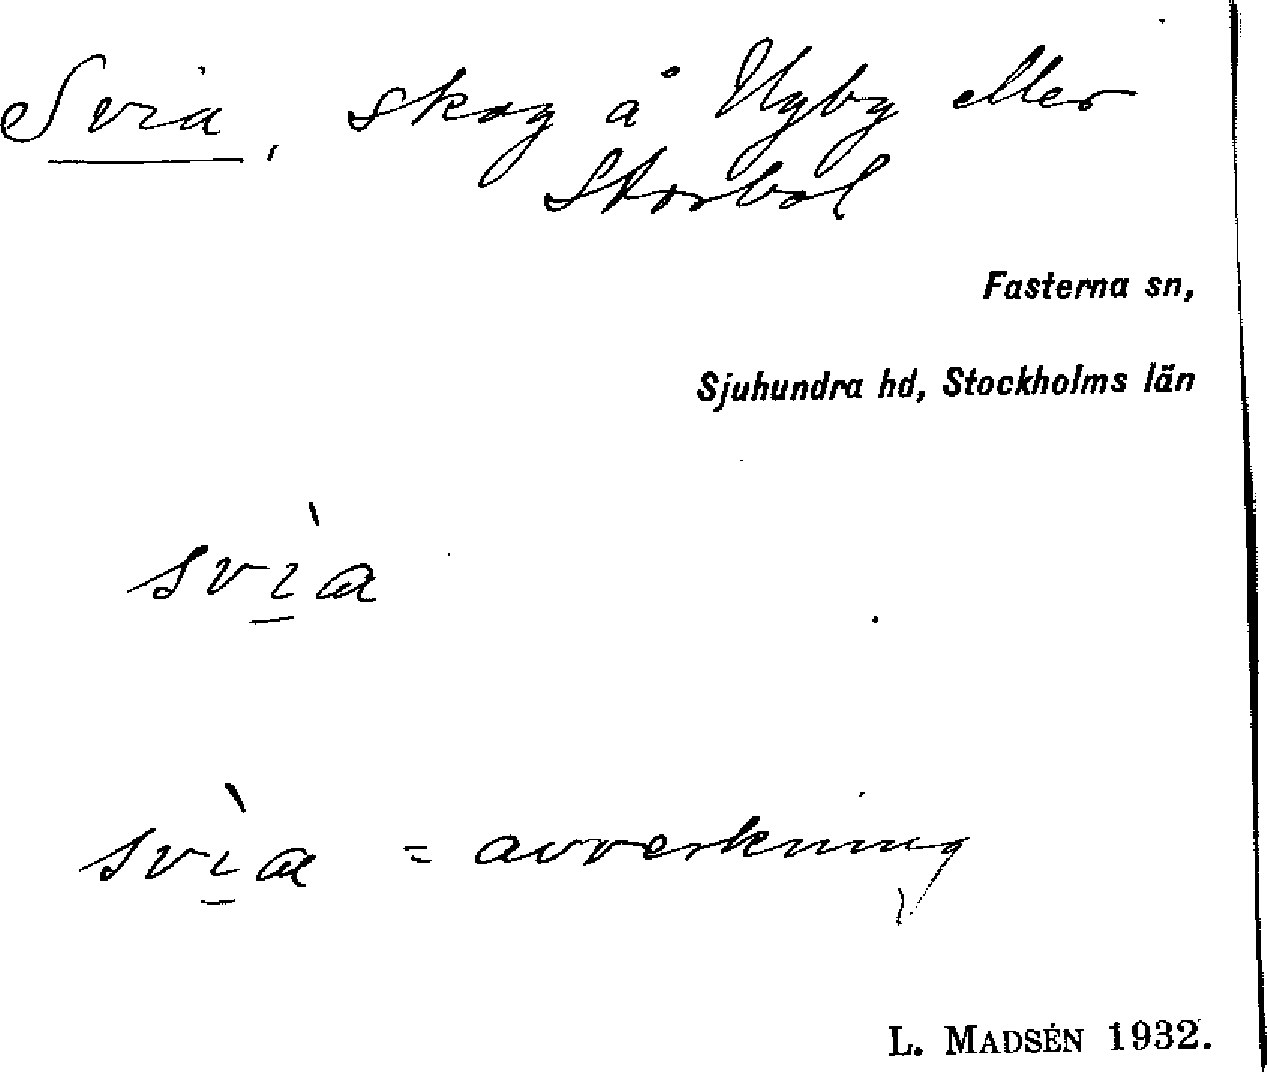 Svia, skog å Ugby eller
Storbol
Fasterna sn,
Sjuhundra hd, Stockholms län
svìa
svìa = avverkning
L. MADSÉN 1932.